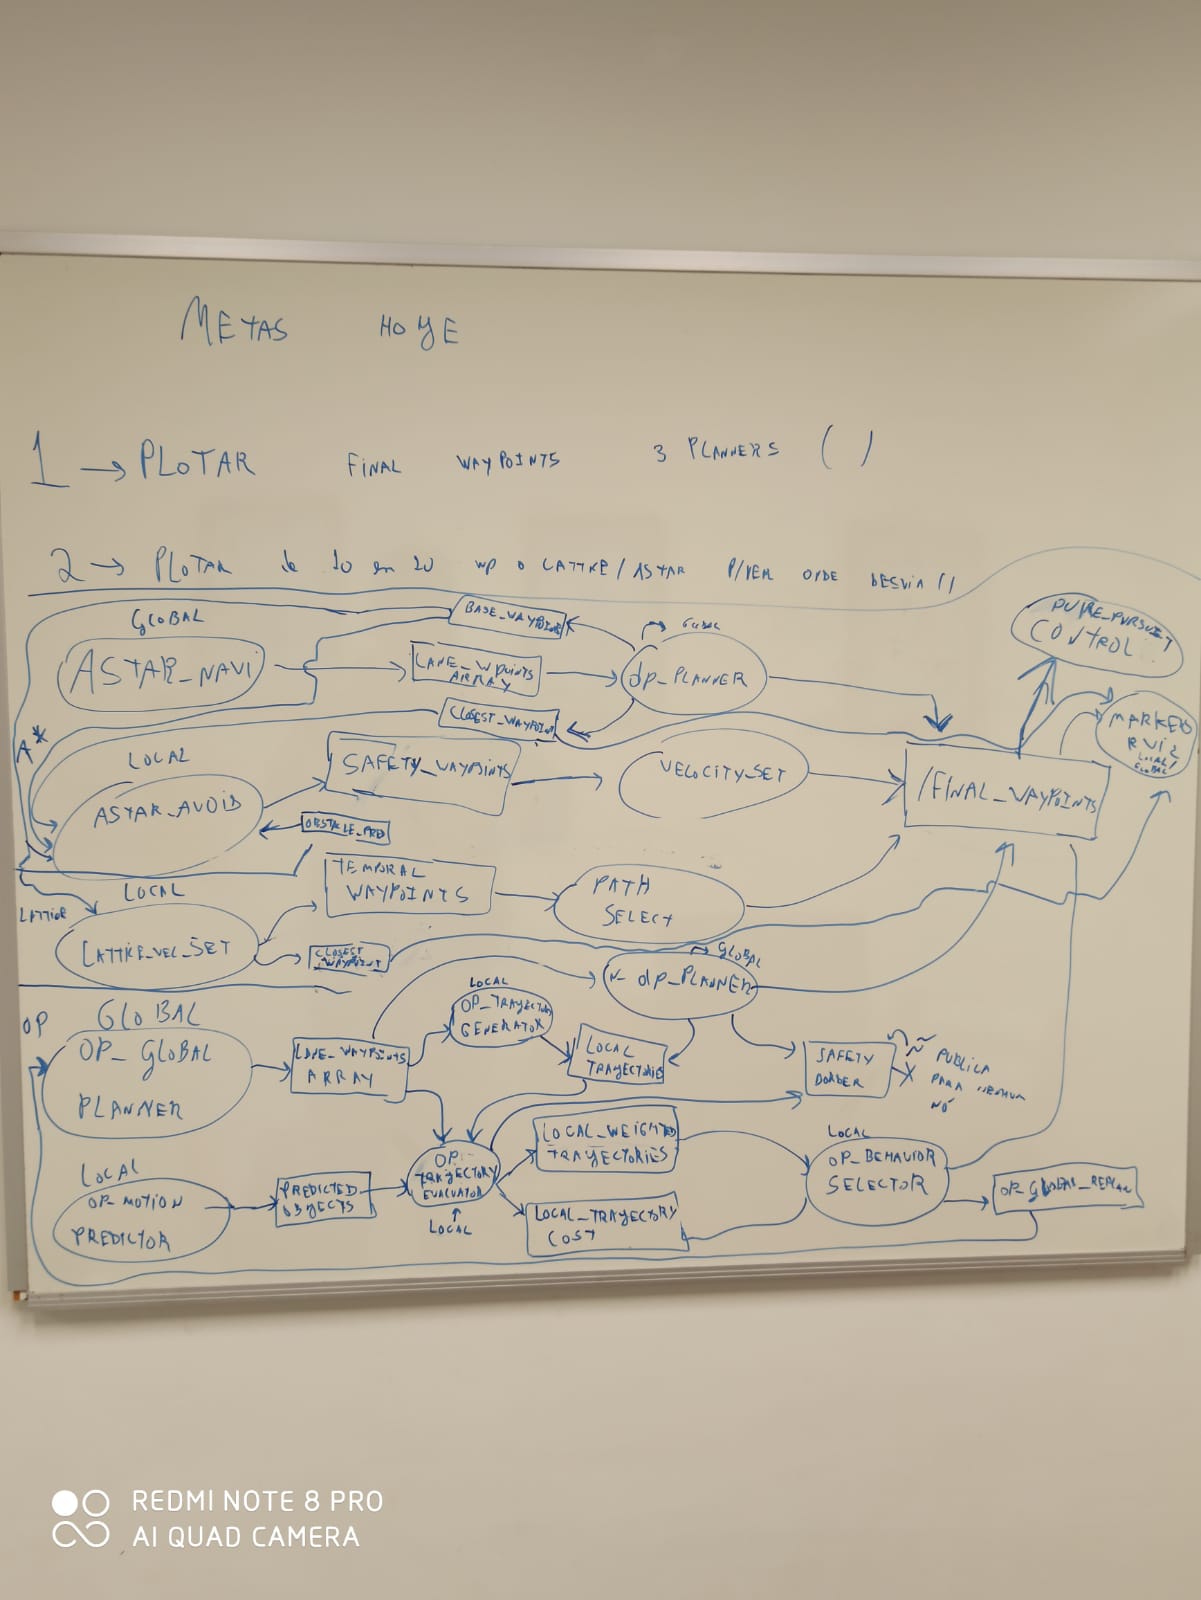 METAS HOYE
1 → PLOTAR FINAL WAYPOINTS 3 PLANNERS ( )
2 → PLOTAR de 10 en 20 WP O LATTICE / ASTAR P/VER ONDE DESVIA ( )
GLOBAL
ASTAR_NAVI
BASE_WAYPOINTS
LANE_WPOINTS
ARRAY
GLOBAL
dp_PLANNER
PURE_PURSUIT
CONTROL
CLOSEST_WAYPOINT
MARKERS
RVIZ
LOCAL/
GLOBAL
A*
LOCAL
ASTAR_AVOID
SAFETY_WAYPOINTS
VELOCITY_SET
/FINAL_WAYPOINTS
OBSTACLE_PRED
LOCAL
LATTICE
LATTICE_VEL_SET
TEMPORAL
WAYPOINTS
PATH
SELECT
CLOSEST
WAYPOINT
GLOBAL
dp_PLANNER
OP
GLOBAL
OP_GLOBAL
PLANNER
LANE_WAYPOINTS
ARRAY
LOCAL
OP_TRAYECTORY
GENERATOR
LOCAL
TRAYECTORIES
SAFETY
BORDER
PUBLICA
PARA NENHUM
NÓ
LOCAL
OP_MOTION
PREDICTOR
PREDICTED
OBJECTS
OP
TRAYECTORY
EVALUATOR
LOCAL
LOCAL_WEIGHTED
TRAYECTORIES
LOCAL_TRAYECTORY
COST
LOCAL
OP_BEHAVIOR
SELECTOR
OP_GLOBAL_REPLAN
REDMI NOTE 8 PRO
AI QUAD CAMERA